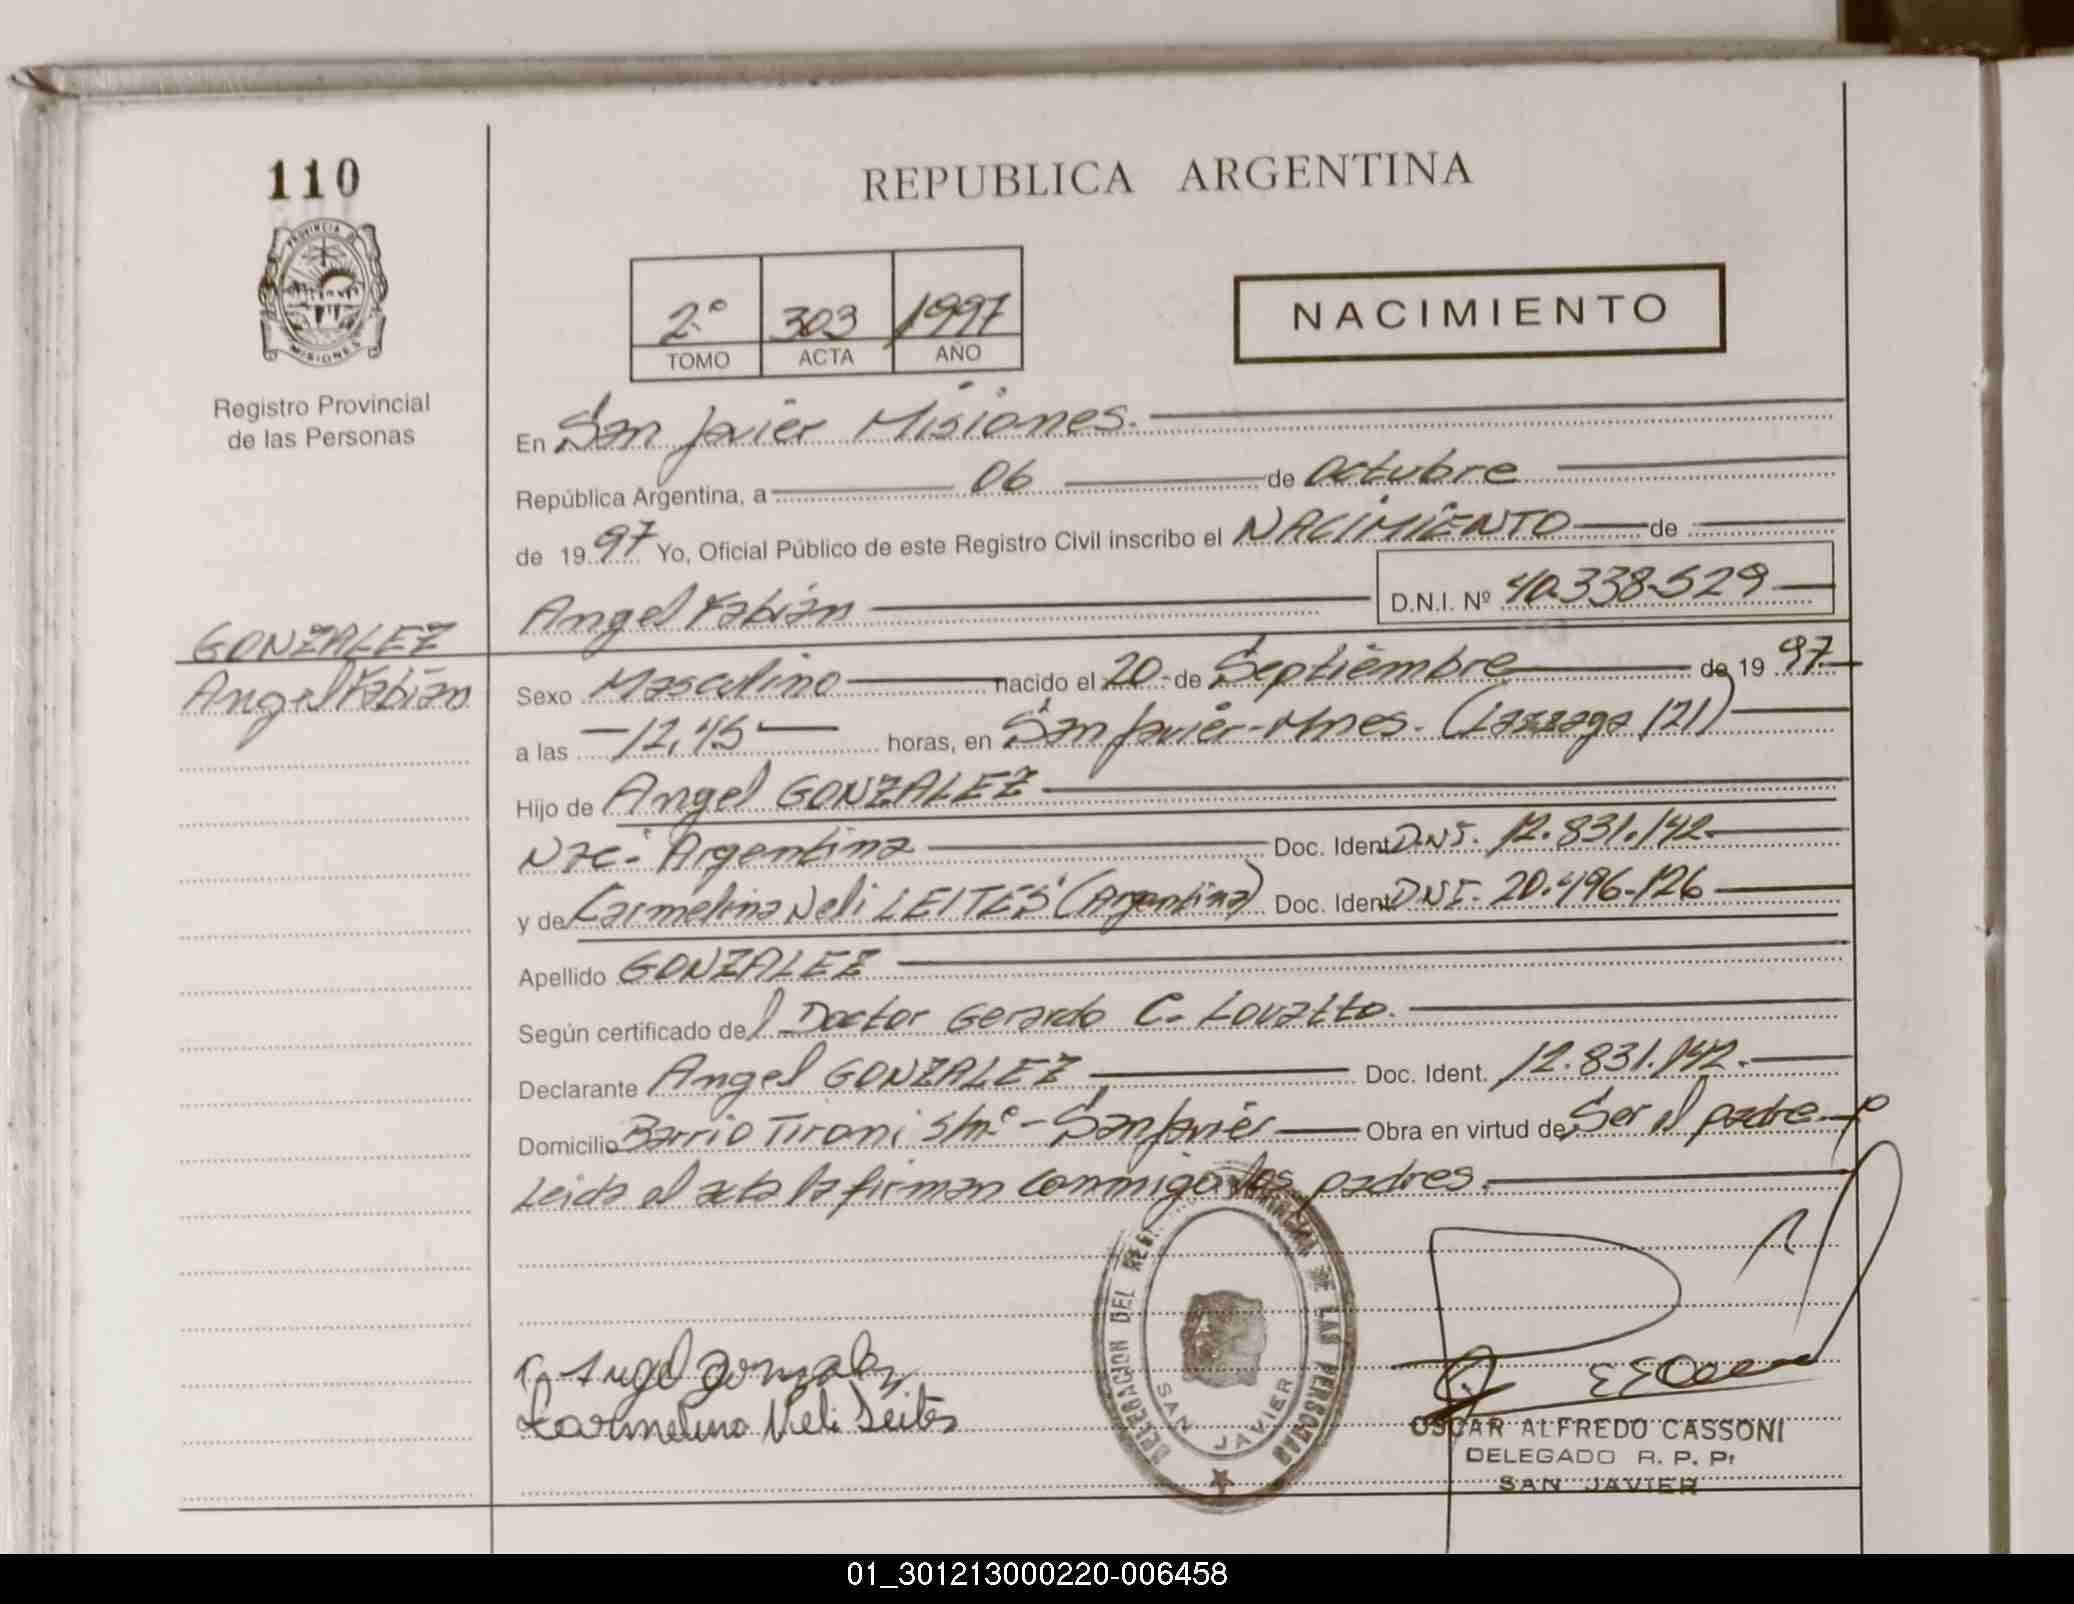 110
PROVINCIA D
MISIONES
Registro Provincial
de las Personas
GONZALEZ
Angel Fabián
REPUBLICA ARGENTINA
2.º 303 1997
TOMO ACTA AÑO
NACIMIENTO
En San Javier Misiones.
República Argentina, a 06 de Octubre
de 1997 Yo, Oficial Público de este Registro Civil inscribo el NACIMIENTO de
Angel Fabián D.N.I. Nº 40.338.529
Sexo Masculino nacido el 20 de Septiembre de 1997
a las 12,45 horas, en San Javier-Mnes. (Lazzaga 121)
Hijo de Angel GONZALEZ
Nac. Argentina Doc. Ident. D.N.I. 12.831.142
y de Karmelina Neli LEITES (Argentina) Doc. Ident. D.N.I. 20.496.126
Apellido GONZALEZ
Según certificado del Doctor Gerardo C. Lovatto.
Declarante Angel GONZALEZ Doc. Ident. 12.831.142.
Domicilio Barrio Tironi s/nº - San Javier Obra en virtud de Ser el padre
Leida el acta la firman conmigo los padres.
Angel Gonzalez
Karmelina Neli Leites
DELEGACION DEL REG. PROVINCIAL DE LAS PERSONAS
SAN JAVIER
OSCAR ALFREDO CASSONI
DELEGADO R. P. P.
SAN JAVIER
01_301213000220-006458